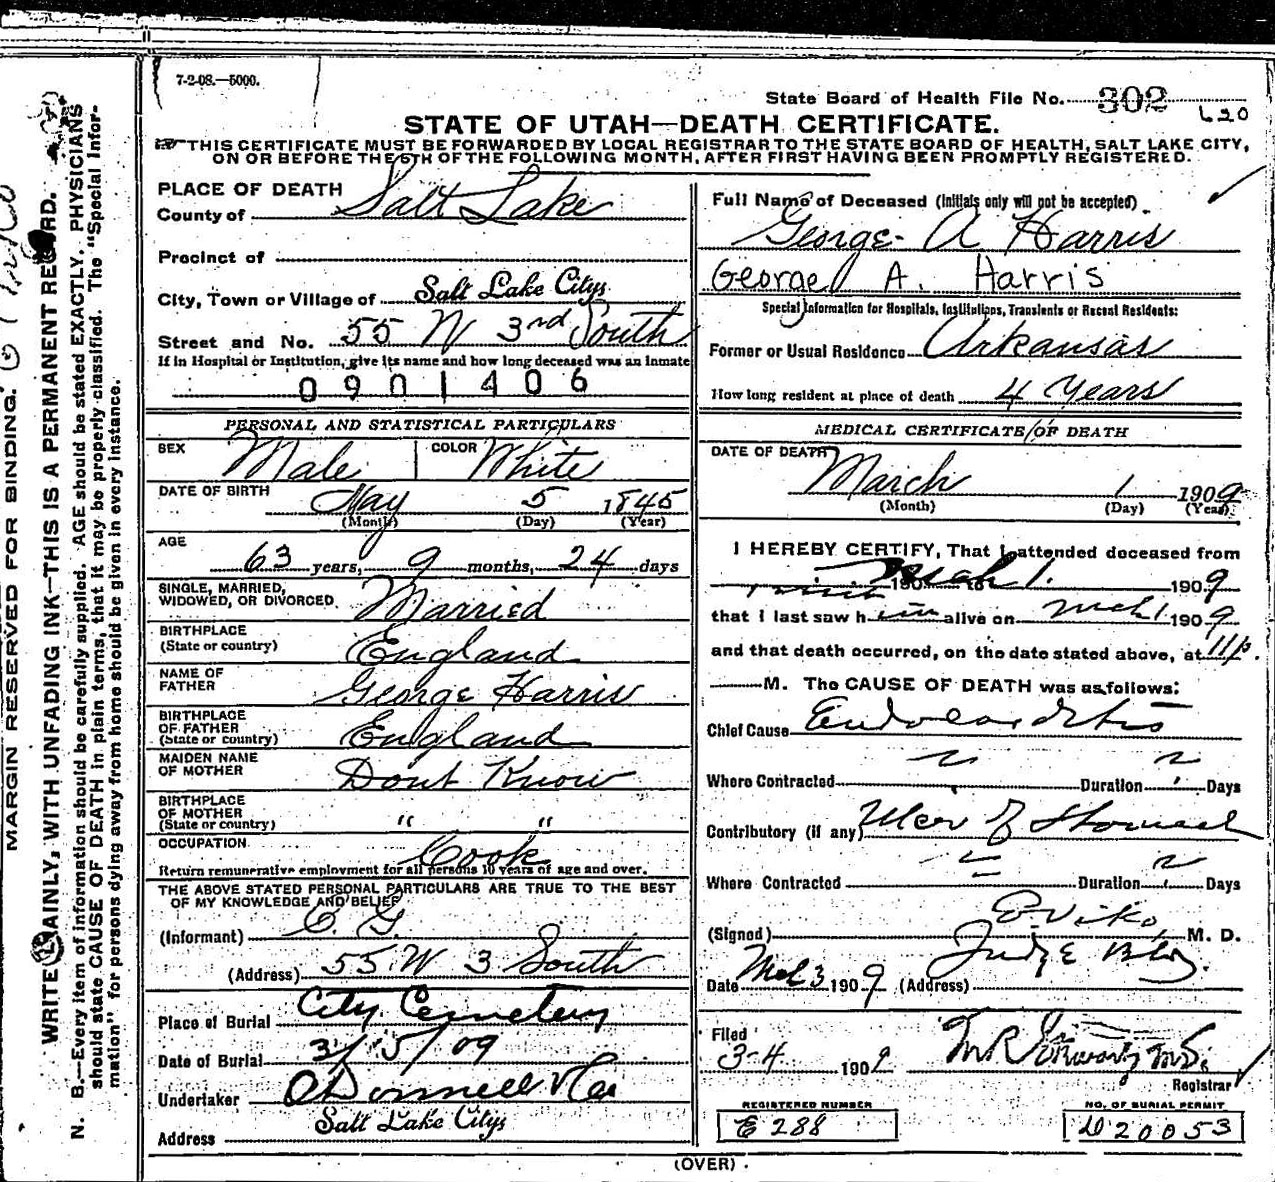 7-2-08.—5000.
State Board of Health File No. 302
620
STATE OF UTAH—DEATH CERTIFICATE.
THIS CERTIFICATE MUST BE FORWARDED BY LOCAL REGISTRAR TO THE STATE BOARD OF HEALTH, SALT LAKE CITY,
ON OR BEFORE THE 5TH OF THE FOLLOWING MONTH, AFTER FIRST HAVING BEEN PROMPTLY REGISTERED.
PLACE OF DEATH
County of Salt Lake
Precinct of
City, Town or Village of Salt Lake City
Street and No. 55 W 3rd South
If in Hospital or Institution, give its name and how long deceased was an inmate
0901406
PERSONAL AND STATISTICAL PARTICULARS
SEX Male COLOR White
DATE OF BIRTH May 5 1845
(Month) (Day) (Year)
AGE
63 years, 9 months, 24 days
SINGLE, MARRIED,
WIDOWED, OR DIVORCED Married
BIRTHPLACE
(State or country) England
NAME OF
FATHER George Harris
BIRTHPLACE
OF FATHER
(State or country) England
MAIDEN NAME
OF MOTHER Dont Know
BIRTHPLACE
OF MOTHER
(State or country) " "
OCCUPATION Cook
Return remunerative employment for all persons 10 years of age and over.
THE ABOVE STATED PERSONAL PARTICULARS ARE TRUE TO THE BEST
OF MY KNOWLEDGE AND BELIEF
(Informant) C. G.
(Address) 55 W 3 South
Place of Burial City Cemetery
Date of Burial 3/5/09
Undertaker O'Donnell & Co
Address Salt Lake City
Full Name of Deceased (Initials only will not be accepted)
George A Harris
George A. Harris
Special Information for Hospitals, Institutions, Transients or Recent Residents:
Former or Usual Residence Arkansas
How long resident at place of death 4 Years
MEDICAL CERTIFICATE OF DEATH
DATE OF DEATH
March 1 1909
(Month) (Day) (Year)
I HEREBY CERTIFY, That I attended deceased from
190 to March 1. 1909
that I last saw him alive on Mch 1 1909
and that death occurred, on the date stated above, at 11 p.
M. The CAUSE OF DEATH was as follows:
Chief Cause Endocarditis
Where Contracted Duration Days
Contributory (if any) Ulcer of Stomach
Where Contracted Duration Days
(Signed) M. D.
Date Mch 3 1909 (Address) Judge Bldg.
Filed
3-4 1909
Registrar
REGISTERED NUMBER
E 288
NO. OF BURIAL PERMIT
D 20053
(OVER)
MARGIN RESERVED FOR BINDING.
WRITE PLAINLY, WITH UNFADING INK—THIS IS A PERMANENT RECORD.
N. B.—Every item of information should be carefully supplied. AGE should be stated EXACTLY. PHYSICIANS
should state CAUSE OF DEATH in plain terms, that it may be properly classified. The "Special Infor-
mation" for persons dying away from home should be given in every instance.